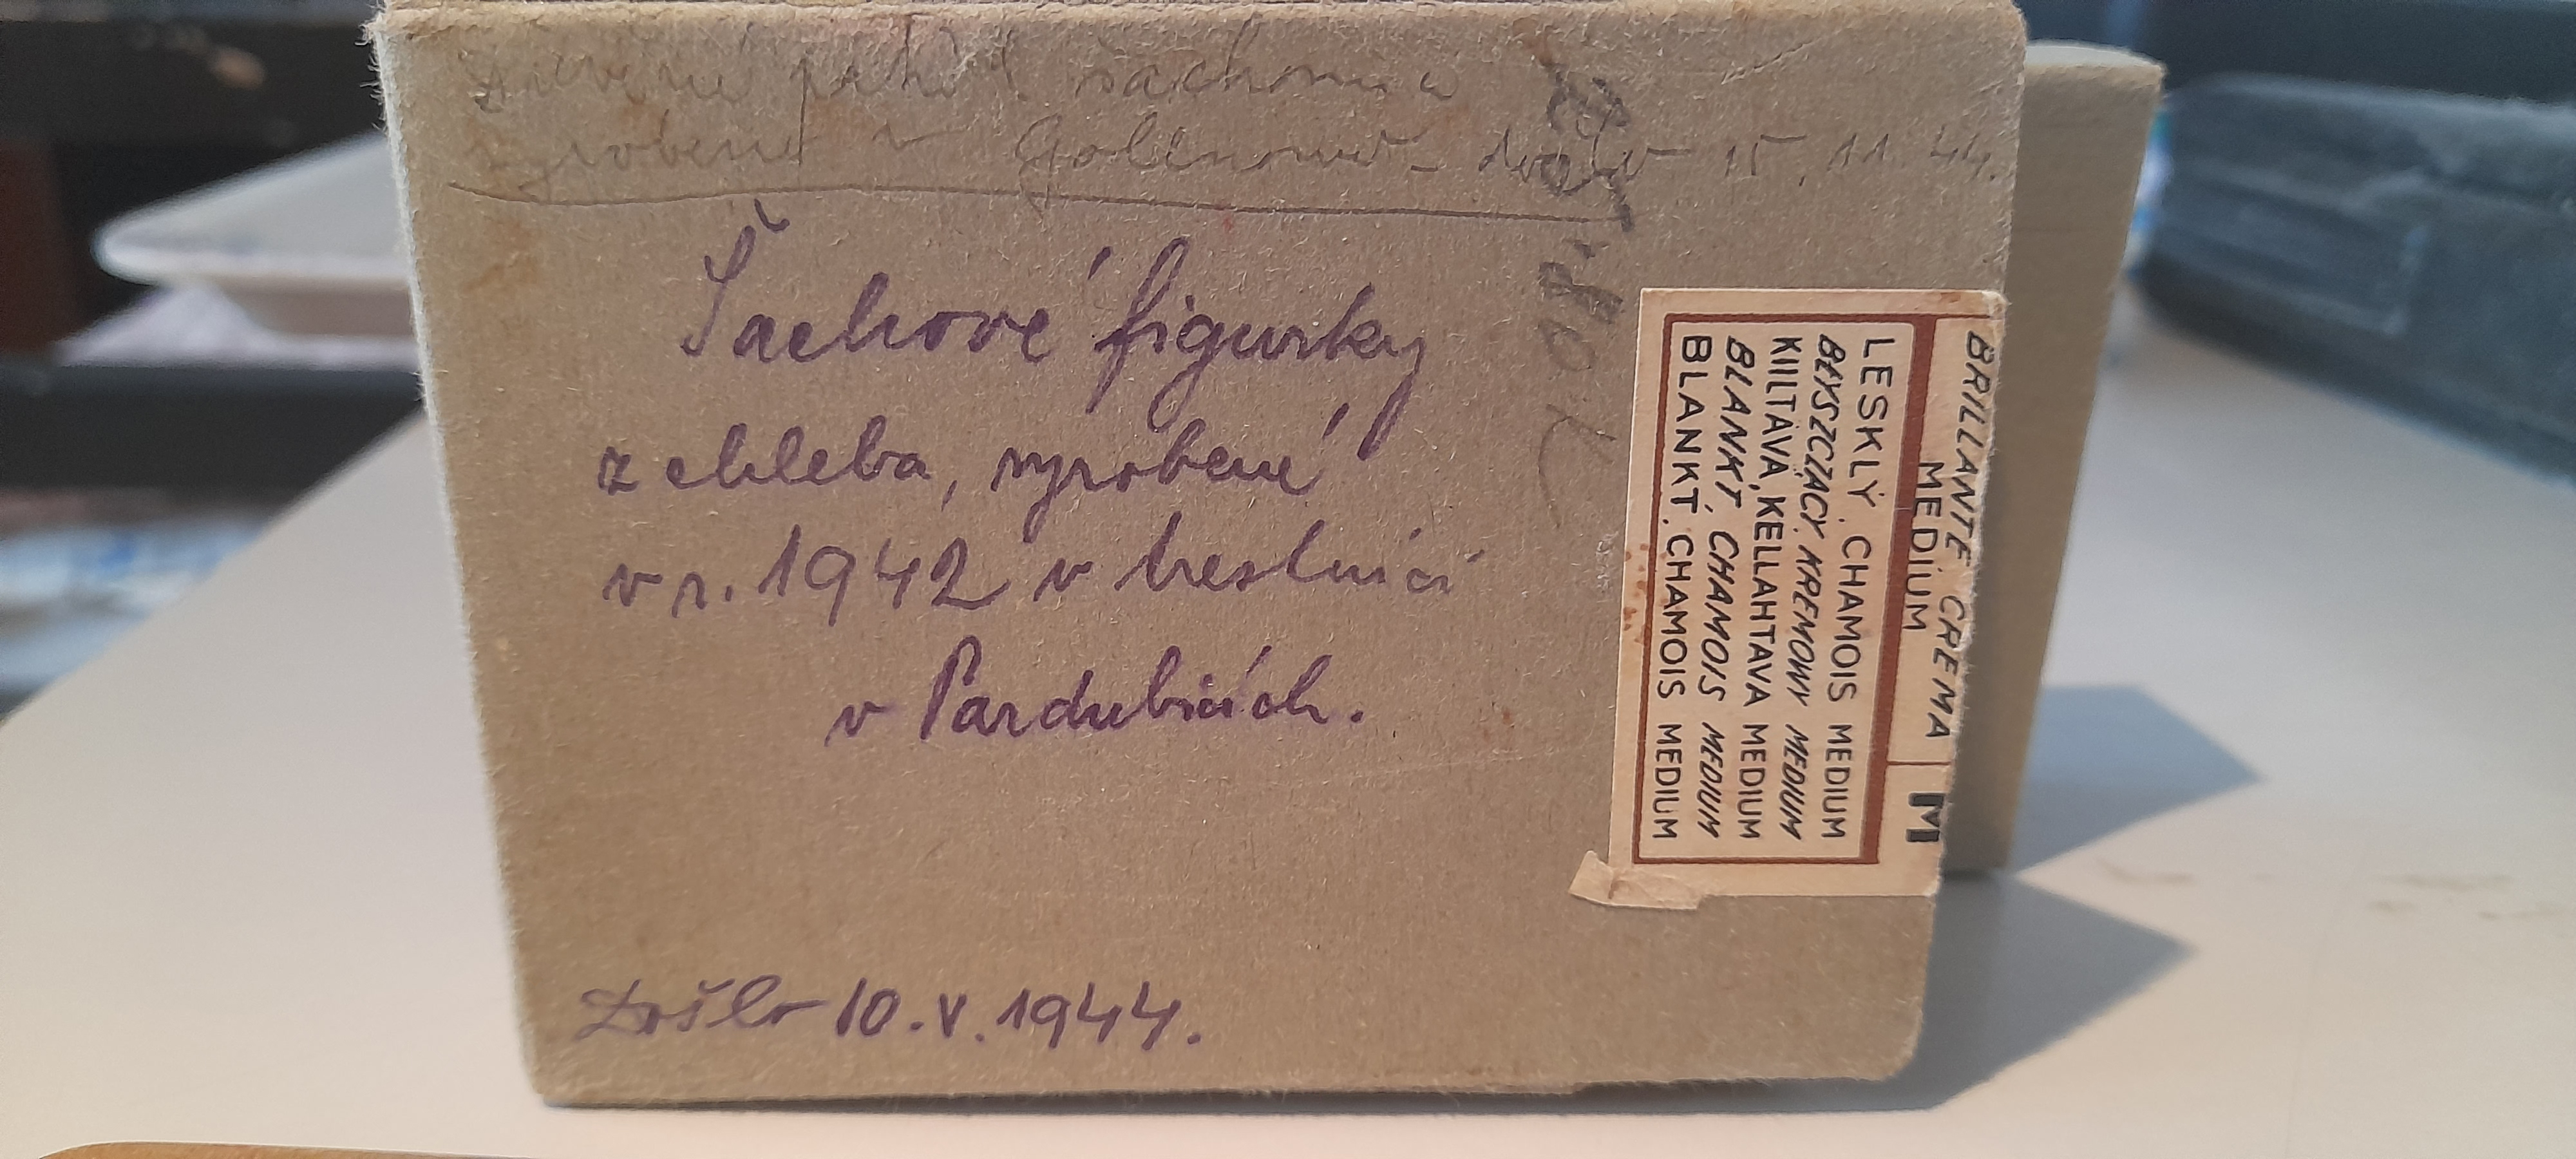 vyrobená v Golnowě - došlo 15.11.44.
Šachové figurky
z chleba, vyrobené
v r. 1942 v trestnici
v Pardubicích.
Došlo 10.V.1944.
BRILLANTE CREMA
MEDIUM
M
LESKLÝ. CHAMOIS MEDIUM
BŁYSZCZĄCY. KREMOWY MEDIUM
KIILTÄVÄ, KELLAHTAVA MEDIUM
BLANKT, CHAMOIS MEDIUM
BLANKT. CHAMOIS MEDIUM